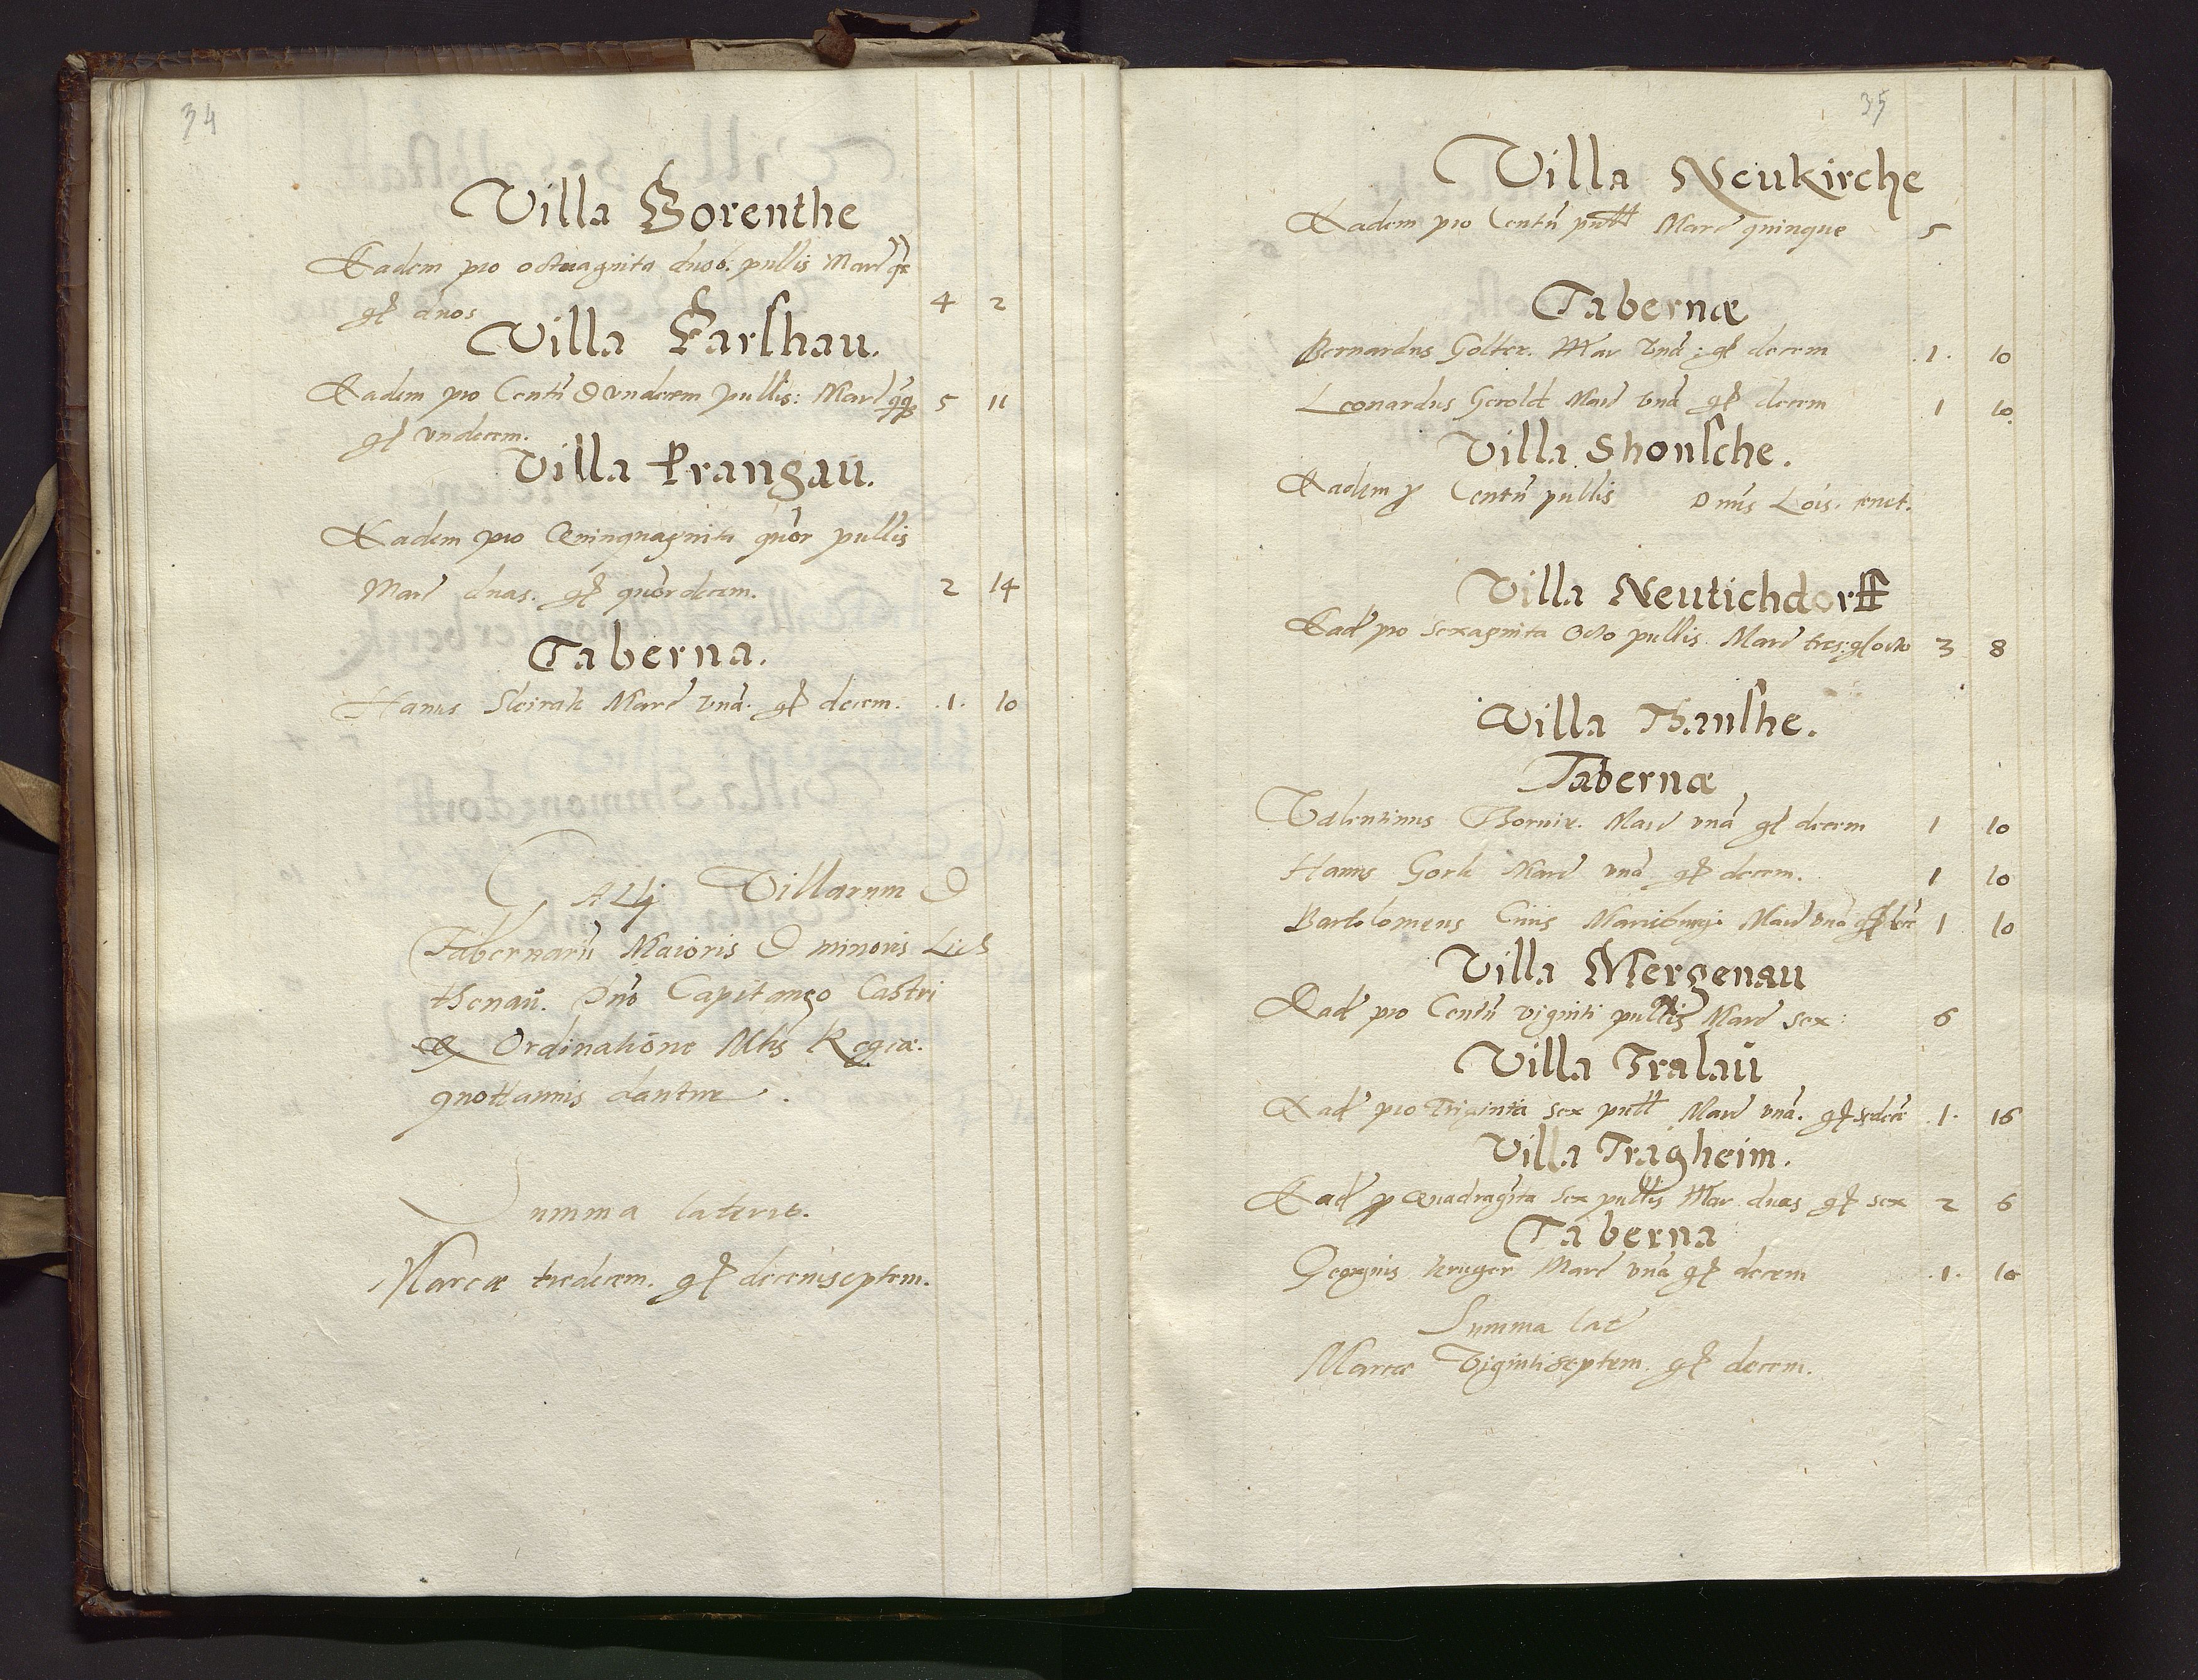 34
Villa Gorenthe
Eadem pro octuaginta duob. pullis Marc
gl duos 4 2
Villa Parshau.
Eadem pro Centũ & vndecem pullis: Marc qq 5 11
gl vndecem.
Villa Prangau.
Eadem pro Quinquaginta quor pullis
Marc duas. gl quordecem. 2 14
Taberna.
Hanus Marc vnã. gl decem. .1. 10
Galli Villarum &
Tabernarũ Maioris & minoris Lich
thenaũ. Dño Capitaneo Castri
ex Ordinatione Mtis Regiæ.
quottannis dantur.
Summa lateris.
Marcæ tredecem. gl decemseptem.
35
Villa Neukirche
Eadem pro Centũ pull Marc quinque 5
Tabernæ
Bernardus Golter. Mar vnã: gl decem .1. 10
Leonardus Gerold Marc vnã gl decem 1 10
Villa Shonsche.
Eadem p Centũ pullis Dnus Lois. tenet.
Villa Neutichdorff
Ead pro Sexaginta Octo pullis Marc tres: gl octo 3 8
Villa Thanshe.
Tabernæ
Valentinus Thornir. Marc vnã gl decem 1 10
Hanus Gork Marc vnã gl decem. 1 10
Bartolomeus Ciuis Marieburg: Marc vnã gl dec 1 10
Villa Mergenau
Ead pro Centũ viginti pullis Marc sex: 6
Villa Tralaũ
Ead pro Triginta sex pull Marc vnã. gl sedecẽ .1. 16
Villa Tragheim.
Ead p Quadragĩta sex pullis Mar duas gl sex 2 6
Taberna
Georgius Kruger Marc vnã gl decem .1. 10
Summa lat
Marcæ Vigintiseptem gl decem.